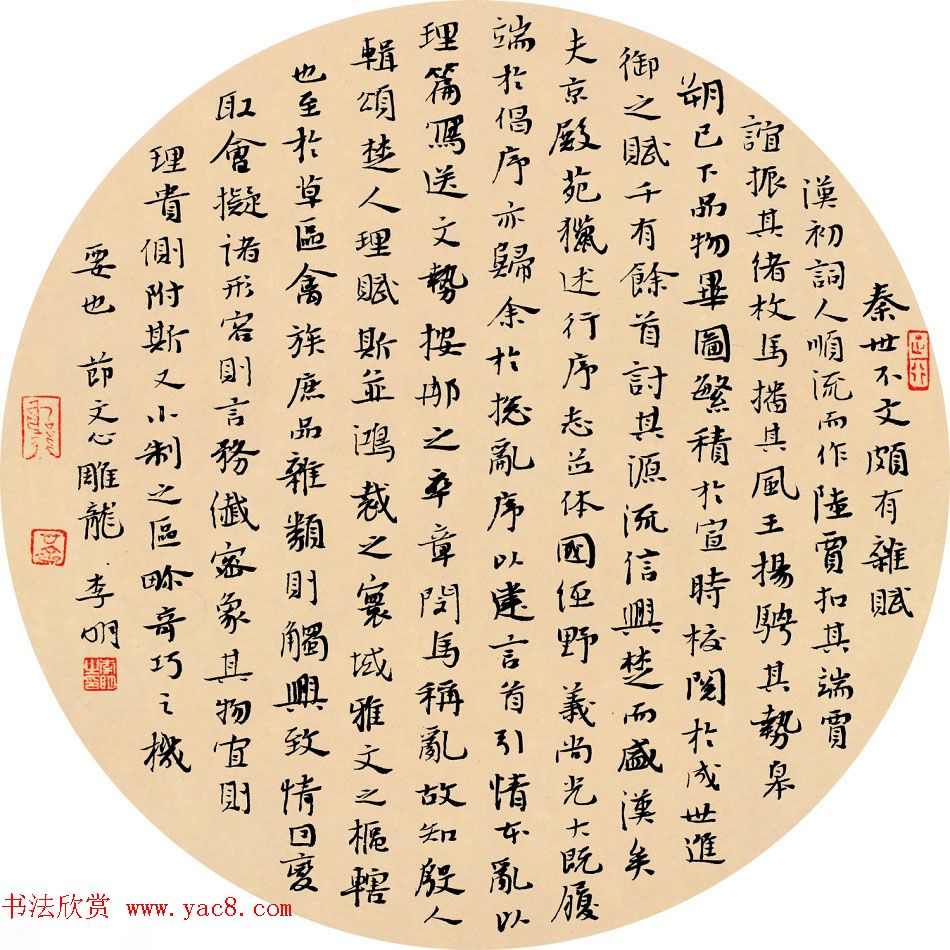 秦世不文頗有雜賦
漢初詞人順流而作陸賈扣其端賈
誼振其緒枚馬播其風王揚騁其勢皋
朔已下品物畢圖繁積於宣時校閱於成世進
御之賦千有餘首討其源流信興楚而盛漢矣
夫京殿苑獵述行序志並体國経野義尚光大既履
端於倡序亦歸余於揔亂序以建言首引情本亂以
理篇寫送文勢按那之卒章閔馬稱亂故知殷人
輯頌楚人理賦斯並鴻裁之寰域雅文之樞轄
也至於草區禽族庶品雜類則觸興致情因變
取會擬諸形容則言務纖密象其物宜則
理貴側附斯又小制之區畛奇巧之機
要也 節文心雕龍 李明
书法欣赏 www.yac8.com